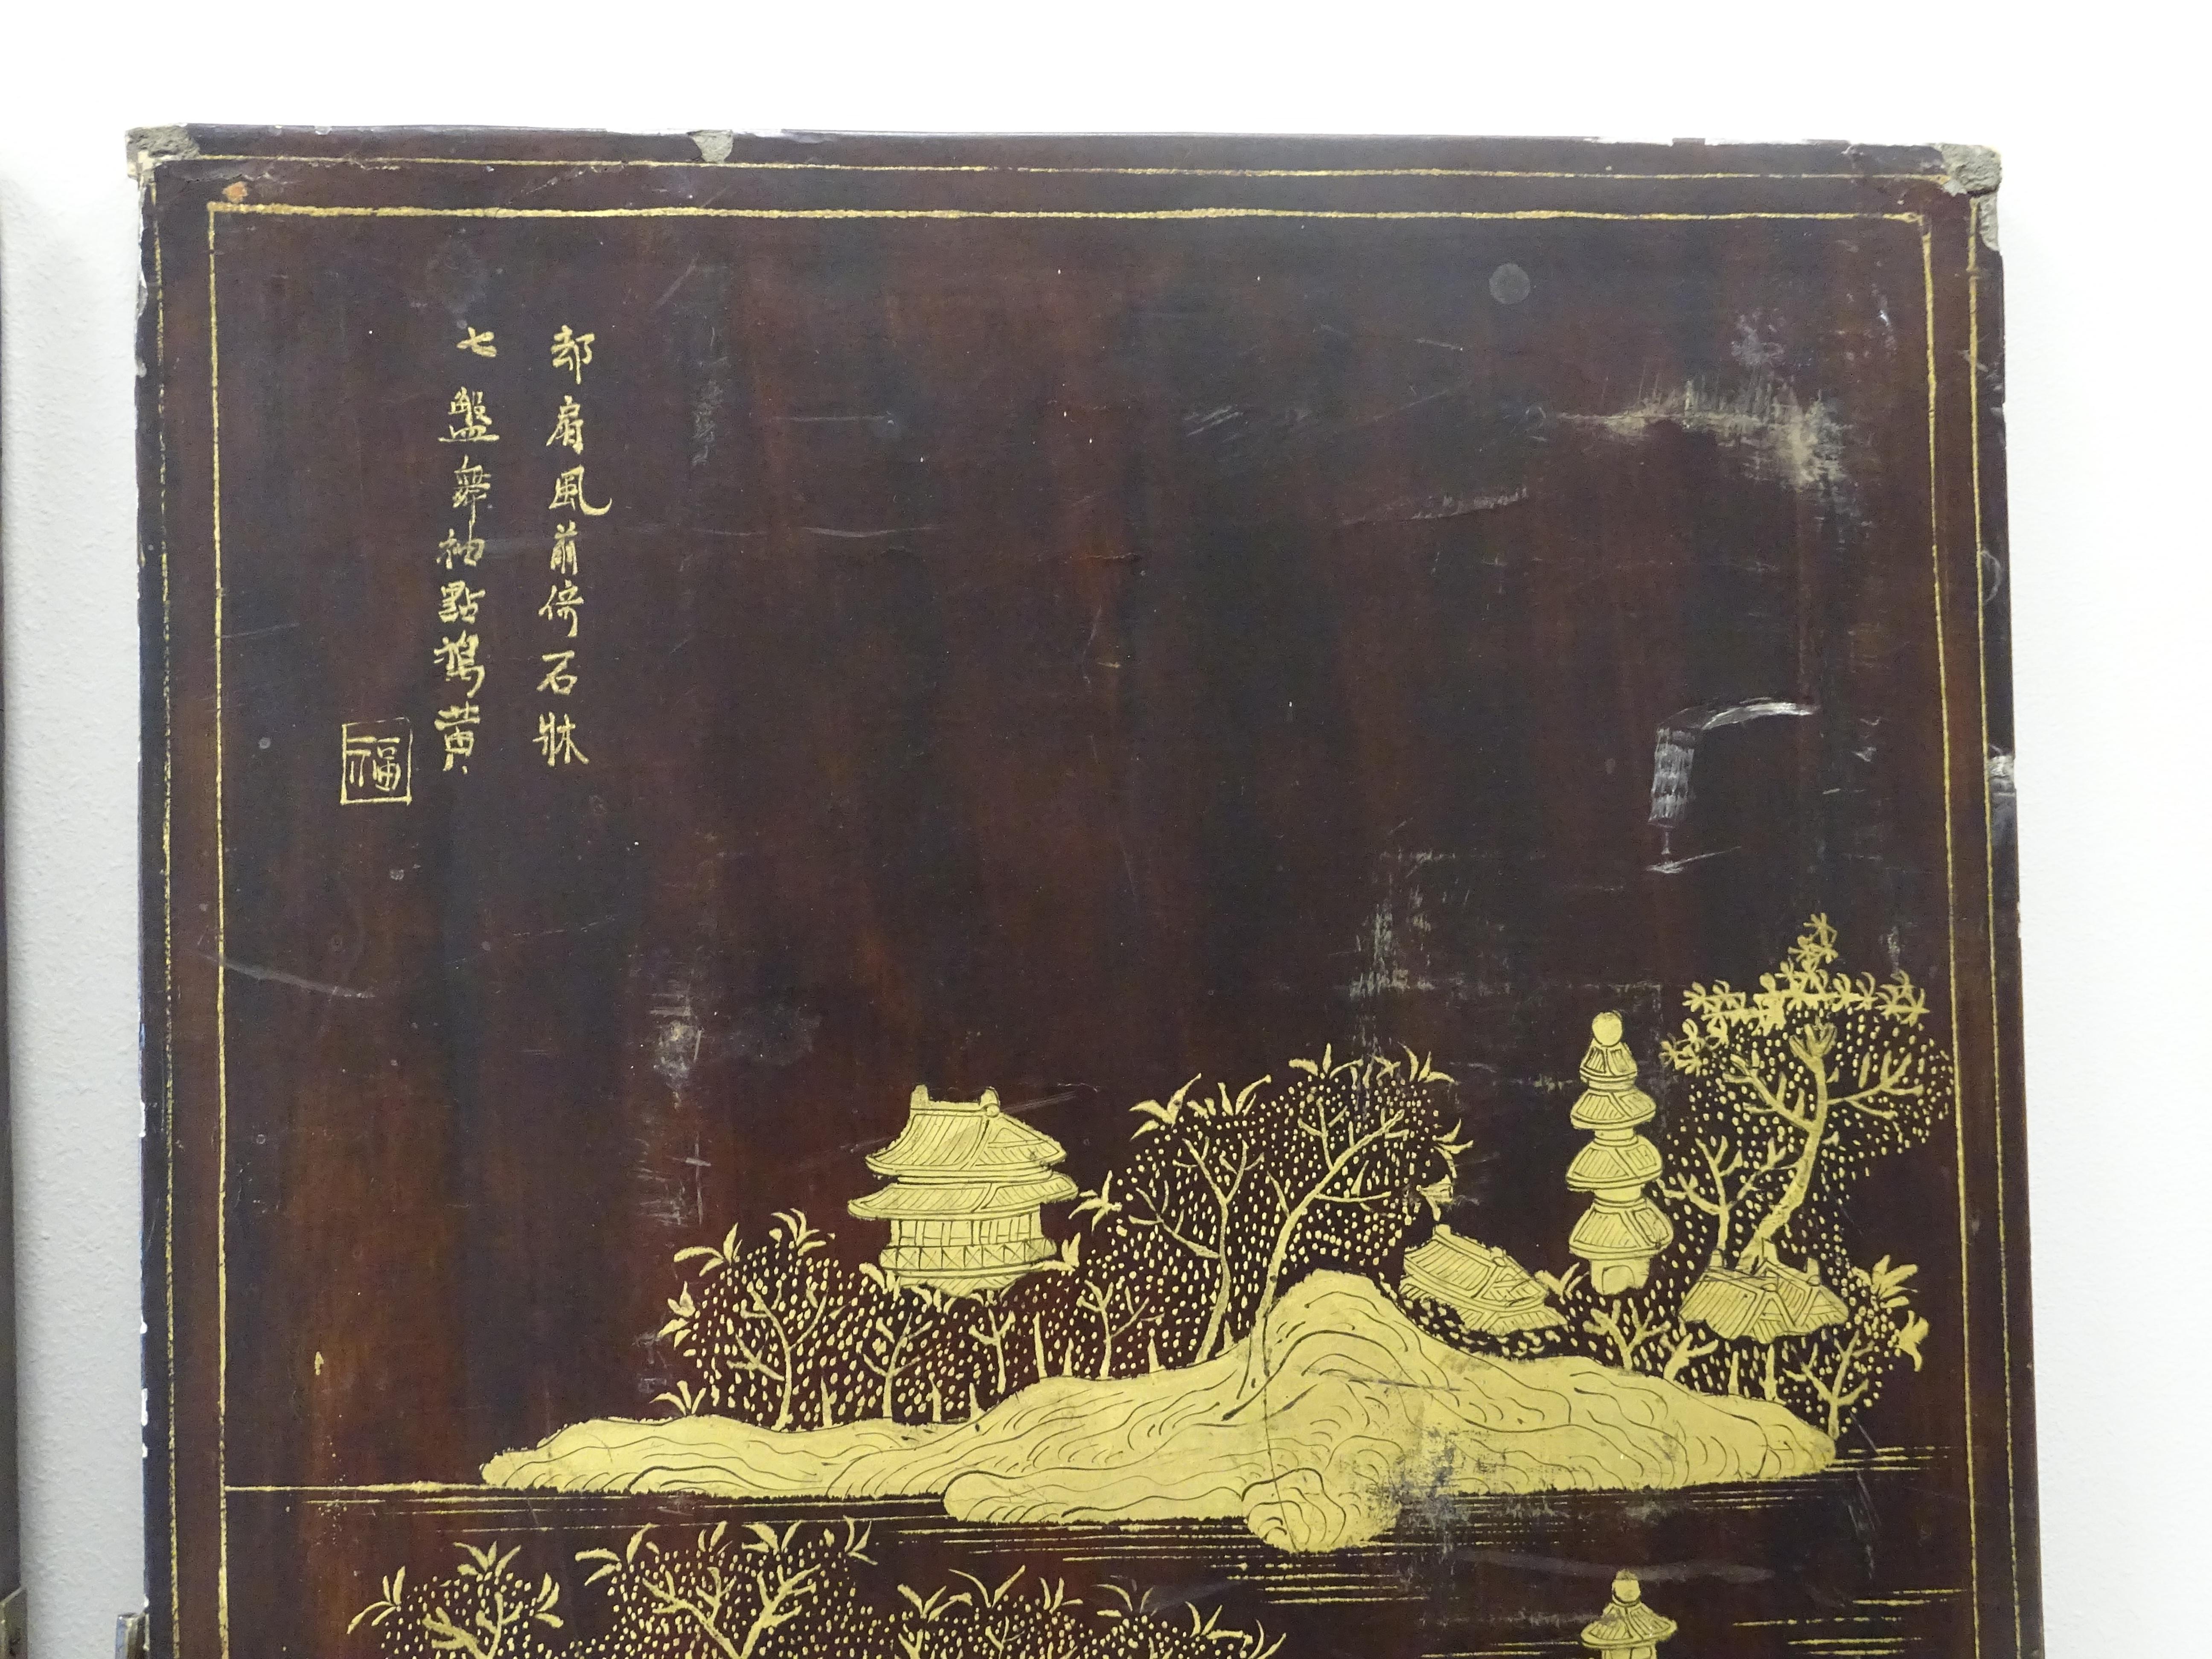 却扇風前倚石牀
七盤舞袖點鵝黃
福